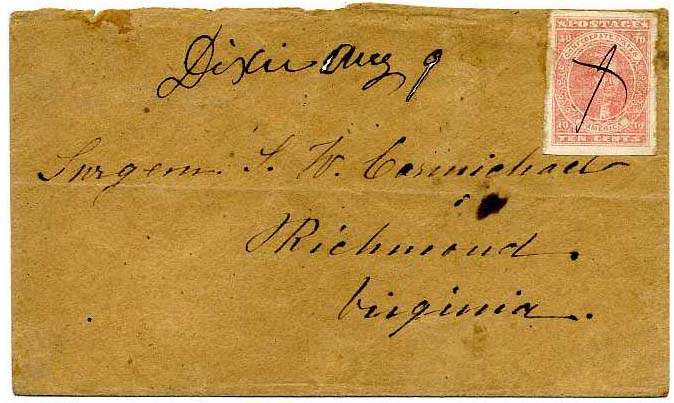 POSTAGE
10 10
CONFEDERATE STATES
AMERICA
10 10
TEN CENTS
Dixie Aug 9
Surgeon S. W. Carmichael
Richmond.
Virginia.